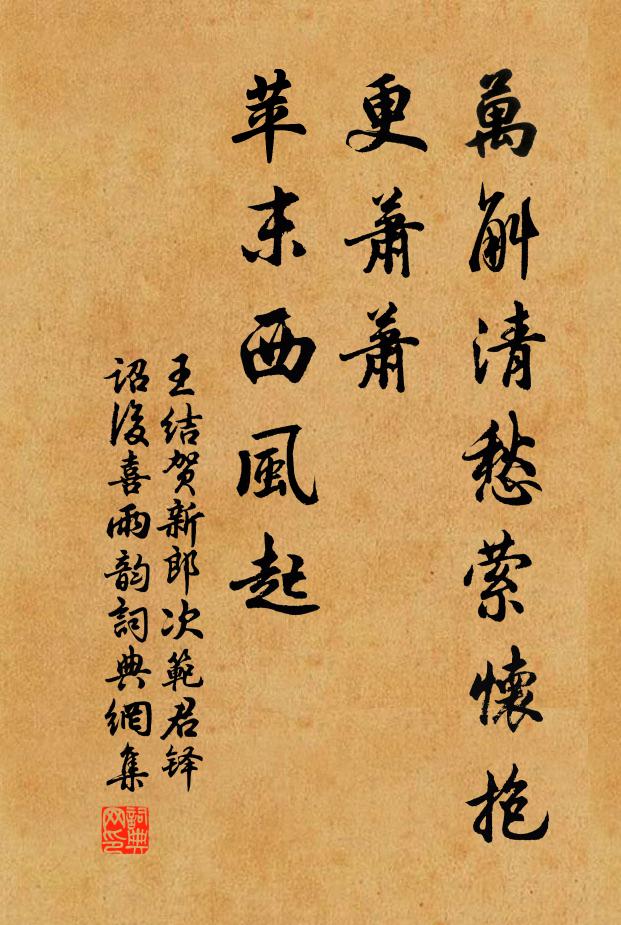 萬斛清愁縈懷抱
更蕭蕭
苹末西風起
王结贺新郎次範君铎
诏後喜雨韵詞典網集
詞典
网印